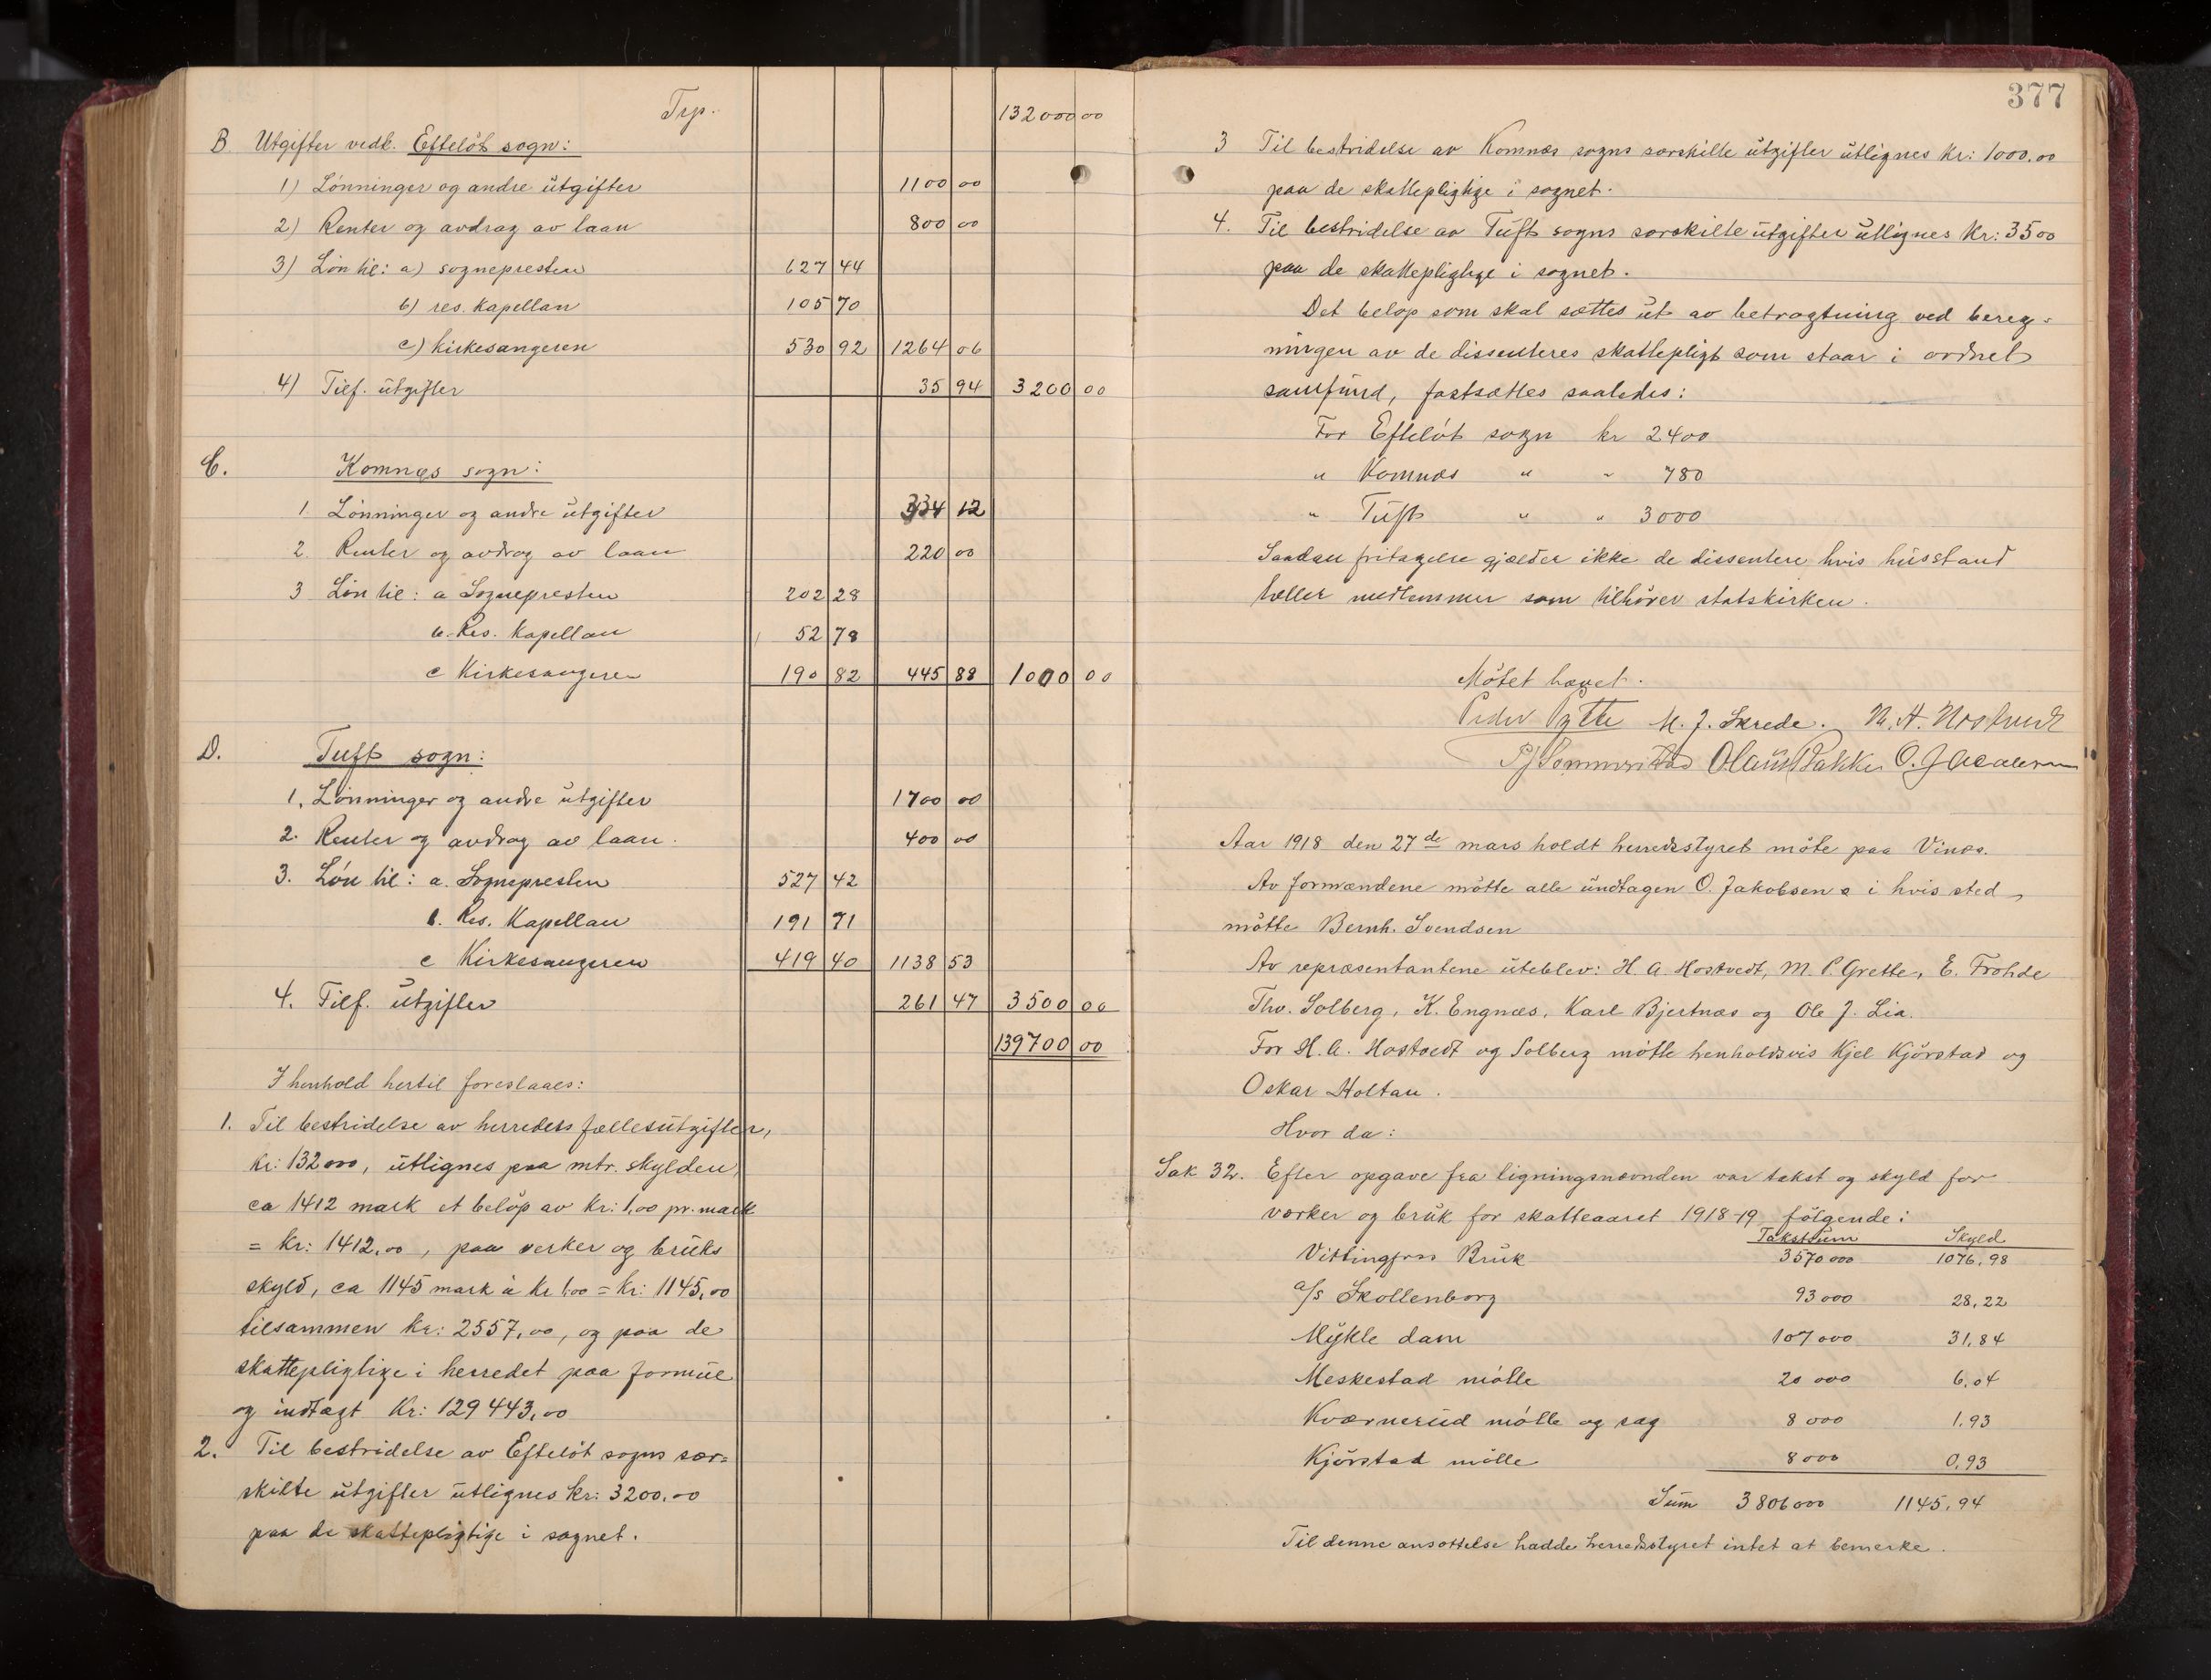 Trp. 132000 00
B Utgifter vedk. Efteløt sogn:
1) Lønninger og andre utgifter 1100 00
2) Renter og avdrag av laan 800 00
3) Løn til: a) sognepresten 627 44
b) res. kapellan 105 70
c) kirkesangeren 530 92 1264 06
4) Tilf. utgifter 35 94 3200 00
C. Komnes sogn:
1. Lønninger og andre utgifter 334 12
2. Renter og avdrag av laan 220 00
3 Løn til: a Sognepresten 202 28
b. Res. Kapellan 52 78
c Kirkesangeren 190 82 445 88 1000 00
D. Tuft sogn:
1. Lønninger og andre utgifter 1700 00
2. Renter og avdrag av laan. 400 00
3. Løn til: a. Sognepresten 527 42
b. Res. Kapellan 191 71
c Kirkesangeren 419 40 1138 53
4. Tilf. utgifter 261 47 3500 00
139700 00
I henhold hertil foreslaaes:
1. Til bestridelse av herredets fællesutgifter,
kr: 132000, utlignes paa mtr. skylden
ca 1412 mark et beløp av kr: 1,00 pr. mark
= kr: 1412,00, paa verker og bruks
skyld, ca 1145 mark à kr 1.00 = kr: 1145,00
tilsammen kr: 2557,00, og paa de
skattepligtige i herredet paa formue
og indtægt kr: 129443,00
2. Til bestridelse av Efteløt sogns sær=
skilte utgifter utlignes kr: 3200.00
paa de skattepligtige i sognet.
377
3 Til bestridelse av Komnæs sogns særskilte utgifter utlignes kr: 1000.00
paa de skattepligtige i sognet.
4. Til bestridelse av Tufts sogns særskilte utgifter utlignes kr: 3500
paa de skattepligtige i sognet.
Det beløp som skal sættes ut av betragtning ved bereg-
ningen av de dissenteres skattepligt som staar i ordnet
samfund, fastsættes saaledes:
For Efteløt sogn kr 2400
" Komnæs " " 780
" Tuft " " 3000
Saadan fritagelse gjælder ikke de dissentere hvis husstand
tæller medlemmer som tilhører statskirken.
Møtet hævet.
Peder Pytte M. J. Skrede. N. A. Hostvedt
Olaus Bakke O. Jacobsen
Aar 1918 den 27de mars holdt herredsstyret møte paa Vinæs.
Av formændene møtte alle undtagen O. Jakobsen i hvis sted
møtte Bernh. Svendsen
Av repræsentantene uteblev: H. A. Hostvedt, M. P. Grette, E. Frohde
Thv. Solberg, K. Engnæs, Karl Bjertnæs og Ole J. Lia.
For H. A. Hostvedt og Solberg møtte henholdsvis Kjel Kjørstad og
Oskar Holtan.
Hvor da:
Sak 32. Efter opgave fra ligningsnævnden var takst og skyld for
verker og bruk for skatteaaret 1918-19 følgende:
Takstsum Skyld
Vittingfoss Bruk 3570000 1076,98
a/s Skollenborg 93000 28,22
Mykle dam 107000 31,84
Meskestad mølle 20 000 6,04
Kværnerud mølle og sag 8000 1,93
Kjørstad mølle 8000 0,93
Sum 3806000 1145,94
Til denne ansættelse hadde herredsstyret intet at bemerke.